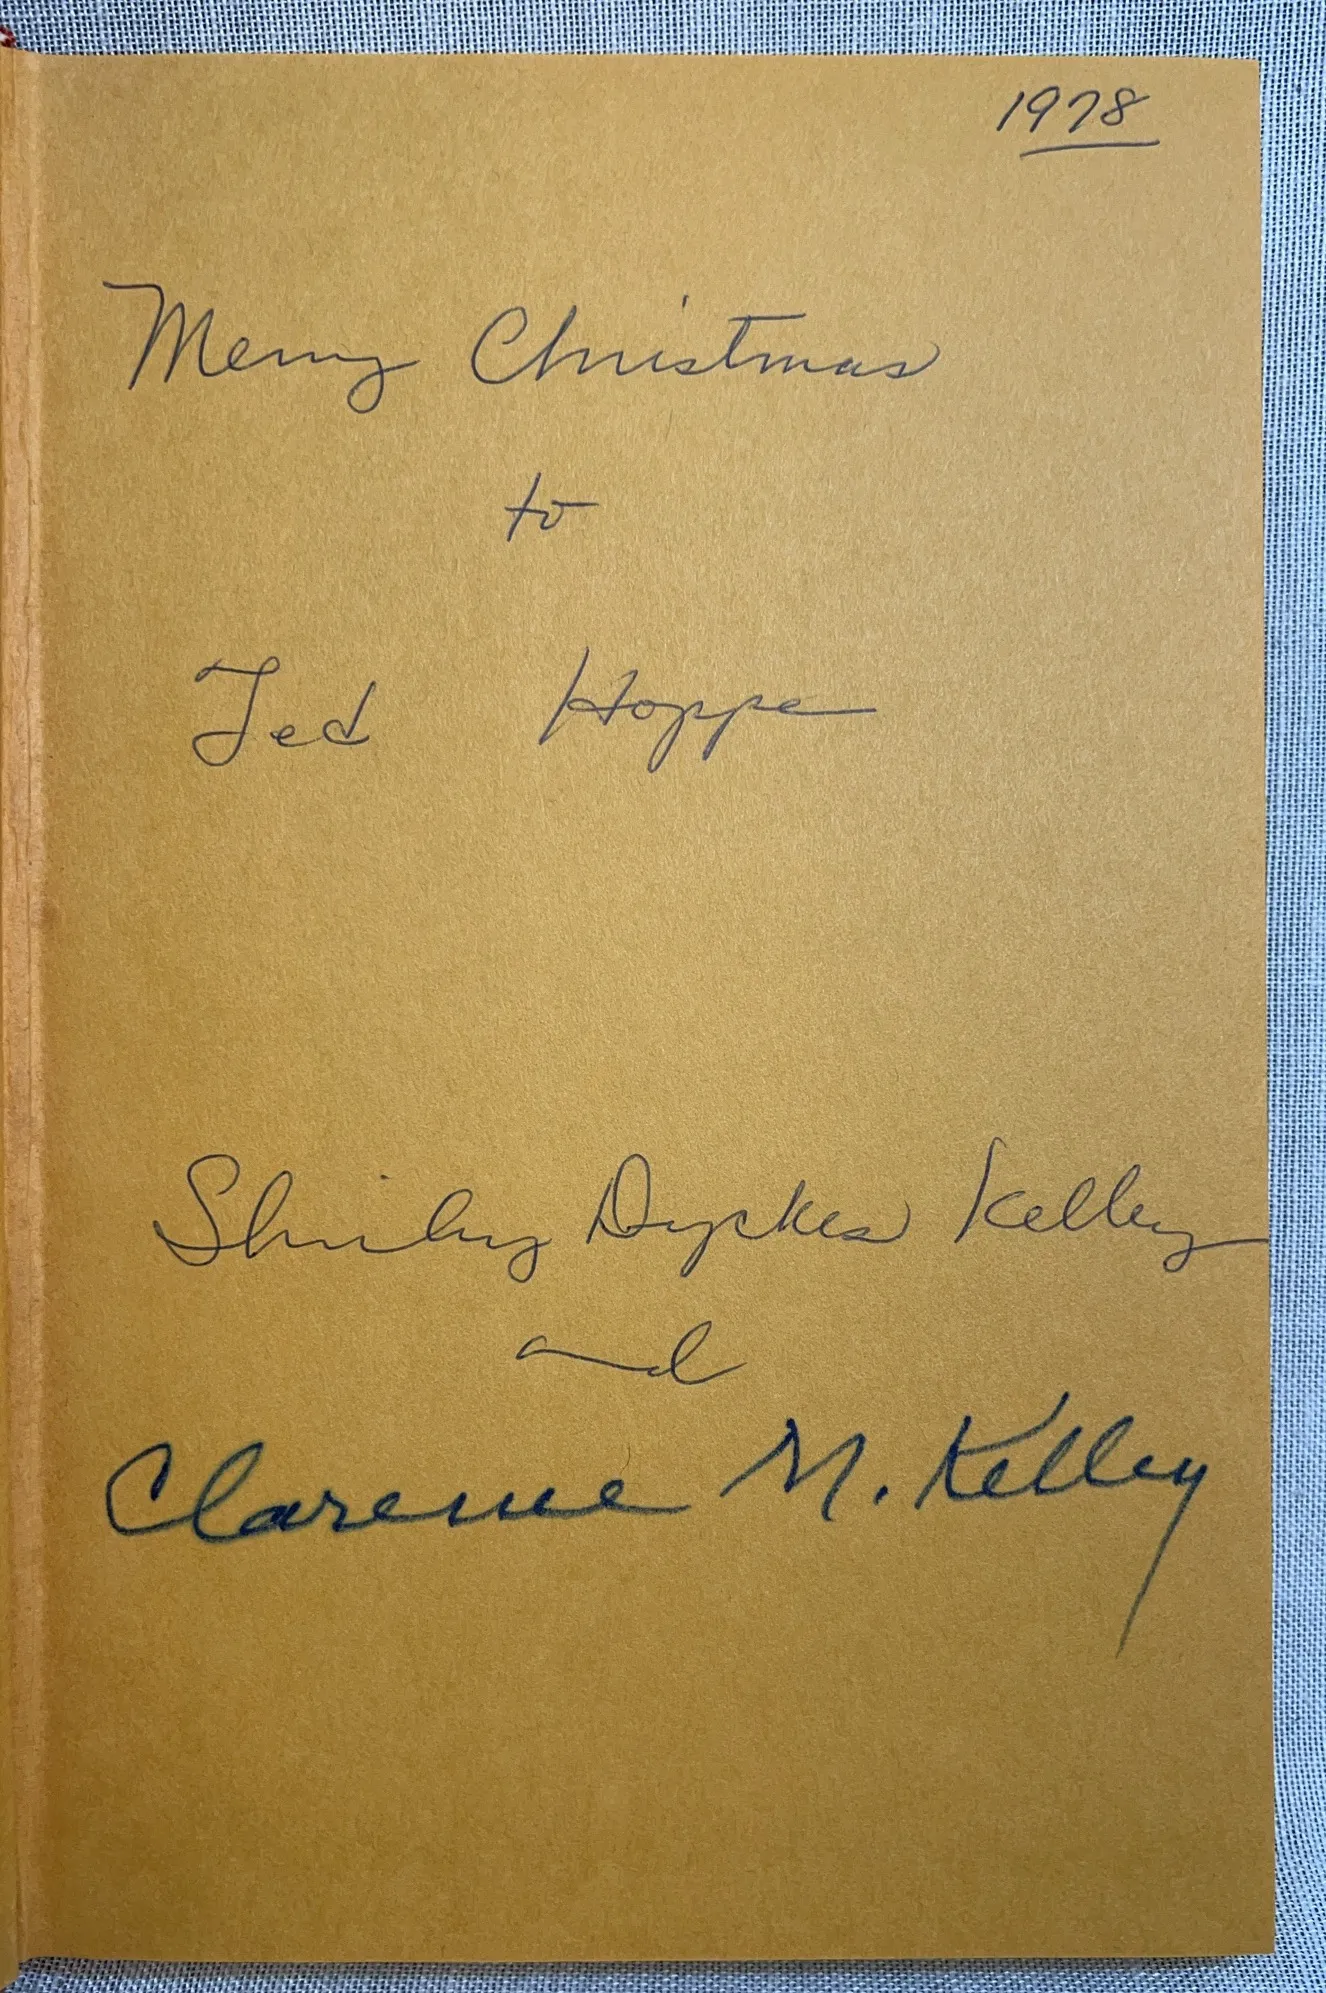 1978
Merry Christmas
to
Ted Hoppe
Shirley Dyckes Kelley
and
Clarence M. Kelley